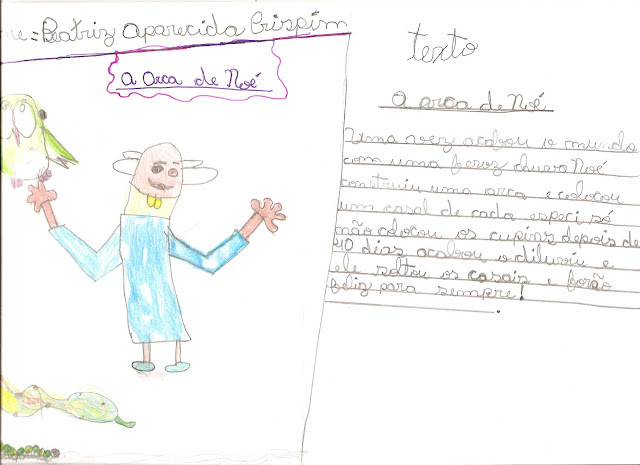 me = Beatriz Aparecida Crispim
a Arca de Noé
texto
a arca de Noé
Uma vez acabou o mundo
com uma feroz chuva Noé
construiu uma arca e colocou
um casal de cada especi só
não colocou os cupins depois de
40 dias acabou o diluviu e
ele soltou os casais e forão
feliz para sempre!